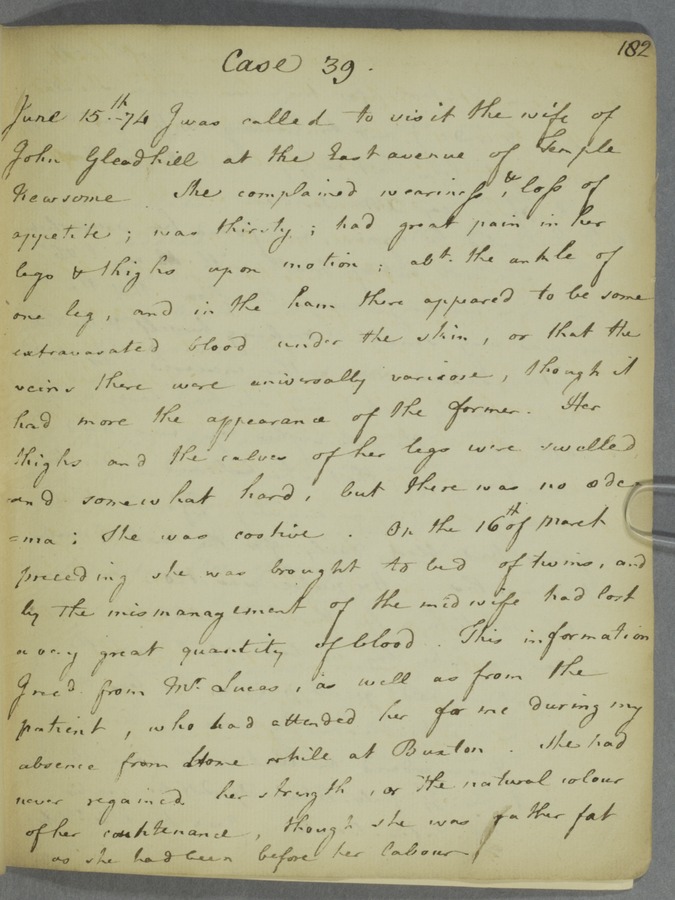 182
Case 39.
June 15th-74 I was called to visit the wife of
John Gleadhill at the East avenue of Temple
Newsome. She complained weariness, & loss of
appetite; was thirsty; had great pain in her
legs & thighs upon motion; abt. the ankle of
one leg, and in the ham there appeared to be some
extravasated blood under the skin, or that the
veins there were universally varicose, though it
had more the appearance of the former. Her
thighs and the calves of her legs were swelled
and somewhat hard, but there was no œde-
=ma; She was costive. On the 16th of March
preceding she was brought to bed of twins, and
by the mismanagement of the midwife had lost
a very great quantity of blood. This information
I rec'd. from Mr. Lucas, as well as from the
patient, who had attended her for me during my
absence from home while at Buxton. She had
never regained her strength, or the natural colour
of her countenance, though she was rather fat
as she had been before her labour